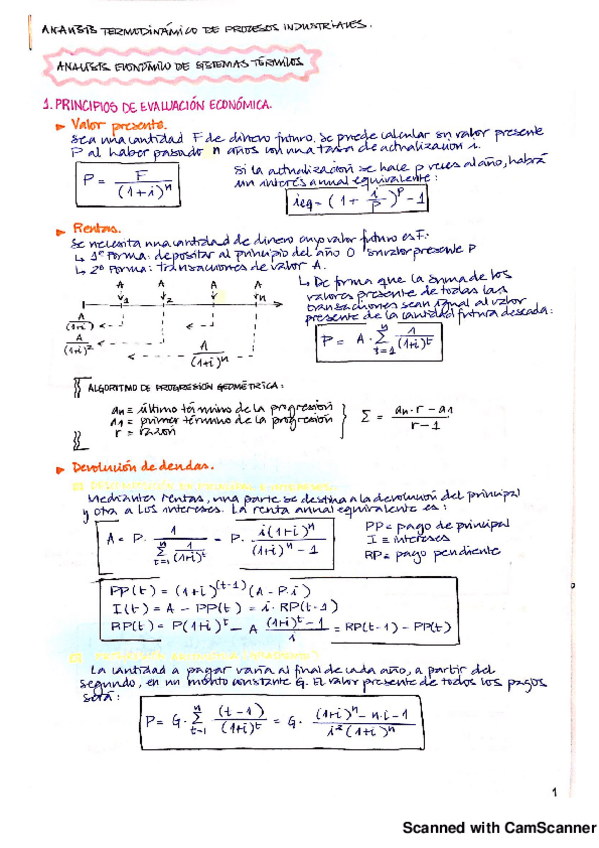 ANALISIS TERMODINÁMICO DE PROCESOS INDUSTRIALES.
ANALISIS ECONÓMICO DE SISTEMAS TÉRMICOS
1. PRINCIPIOS DE EVALUACIÓN ECONÓMICA.
► Valor presente.
Sea una cantidad F de dinero futuro. Se puede calcular su valor presente
P al haber pasado n años con una tasa de actualización i.
P = F / (1+i)^n
Si la actualización se hace p veces al año, habrá
un interés anual equivalente:
ieq = (1 + i/p)^p - 1
► Rentas.
Se necesita una cantidad de dinero cuyo valor futuro es F:
↳ 1ª Forma: depositar al principio del año 0 su valor presente P
↳ 2ª Forma: transacciones de valor A.
A A A A
1 2 n
A/(1+i)
A/(1+i)^2
A/(1+i)^n
↳ De forma que la suma de los
valores presente de todas las
transacciones sean igual al valor
presente de la cantidad futura deseada:
P = A · Σ_{t=1}^{n} 1/(1+i)^t
ALGORITMO DE PROGRESIÓN GEOMÉTRICA:
an ≡ último término de la progresión
a1 = primer término de la progresión
r = razón
Σ = (an·r - a1)/(r-1)
► Devolución de deudas.
Mediantes rentas, una parte se destina a la devolución del principal
y otra a los intereses. La renta anual equivalente es:
A = P · 1/(Σ_{t=1}^{n} 1/(1+i)^t) = P · i(1+i)^n/((1+i)^n - 1)
PP = pago de principal
I = intereses
RP = pago pendiente
PP(t) = (1+i)^(t-1) (A - P·i)
I(t) = A - PP(t) = i · RP(t-1)
RP(t) = P(1+i)^t - A ((1+i)^t - 1)/i = RP(t-1) - PP(t)
La cantidad a pagar varía al final de cada año, a partir del
segundo, en un monto constante G. El valor presente de todos los pagos
será:
P = G · Σ_{t=1}^{n} (t-1)/(1+i)^t = G · ((1+i)^n - n·i - 1)/(i^2 (1+i)^n)
1
Scanned with CamScanner